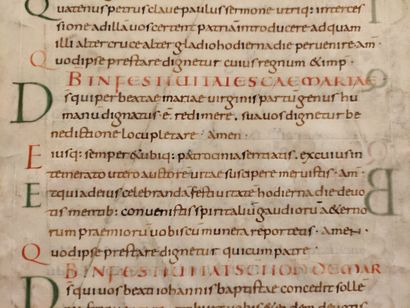 Quatenus petrus clave paulus sermone utriq: interces
sione adilla uos certent patriam introducere ad quam
illi alter cruce alter gladio hodierna die peruenire am
Quod ipse prestare dignetur cuius regnum & imp
B IN FESTIUITATE SCAE MARIAE
Ds qui per beatae mariae uirginis partu genus hu
manu dignatus e redimere, sua uos dignetur be
nedictione locupletare amen
Eiusq: semper & ubiq: patrocinia sentiatis, ex cuius in
temerato utero auctore uitae suscipere meruistis. am
Et qui ad eius celebranda festiuitate hodierna die deuo
tis mentib: conuenistis spiritaliu gaudioru & aeterno
rum praemioru uobiscum munera reportetis. amen
Quod ipse prestare dignetur qui cum patre
B IN FESTIUITATE SCI IOH DE MAR
Ds qui uos beati iohannis baptistae concedit solle